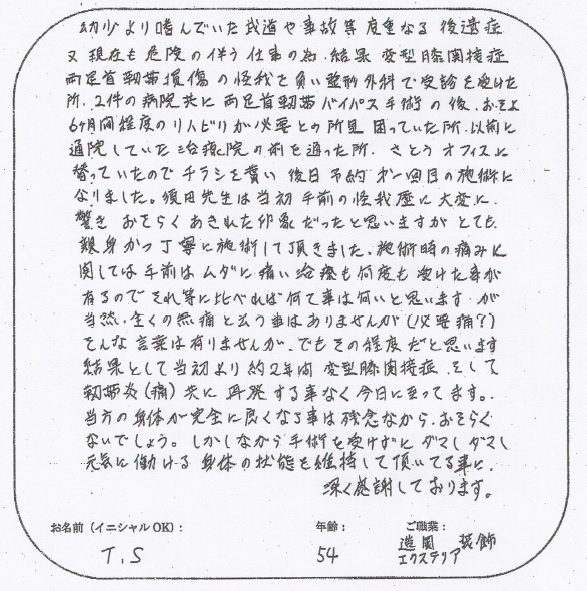 幼少より嗜んでいた武道や事故等 度重なる 後遺症
又 現在も危険の伴う仕事の為、結果 変型膝関接症
両足首靭帯損傷の怪我を負い整形外科で受診を受けた
所、2件の病院共に両足首靭帯バイパス手術の後、およそ
6ヶ月間程度のリハビリが必要との所見 困っていた所、以前に
通院していた治療院の前を通った所、さとうオフィスに
替っていたのでチラシを貰い後日予約 第一回目の施術に
なりました。須田先生は当初手前の怪我歴に大変に
驚き おそらくあきれた印象だったと思いますがとても
親身かつ丁寧に施術して頂きました。施術時の痛みに
関しては手前はムダに痛い治療も何度も受けた事が
有るのでそれ等に比べれば何て事は何いと思います が
当然、全くの無痛と云う事はありませんが(必要痛?)
そんな言葉は有りませんが、でもその程度だと思います
結果として当初より約2年間 変型膝関接症、そして
靭帯炎(痛)共に再発する事なく今日に至ってます。
当方の身体が完全に良くなる事は残念ながら、おそらく
ないでしょう。しかしながら手術を受けずにダマしダマし
元気に働ける身体の状態を維持して頂いてる事に、
深く感謝しております。
お名前(イニシャルOK): 年齢: ご職業:
T.S 54 造園 装飾
エクステリア